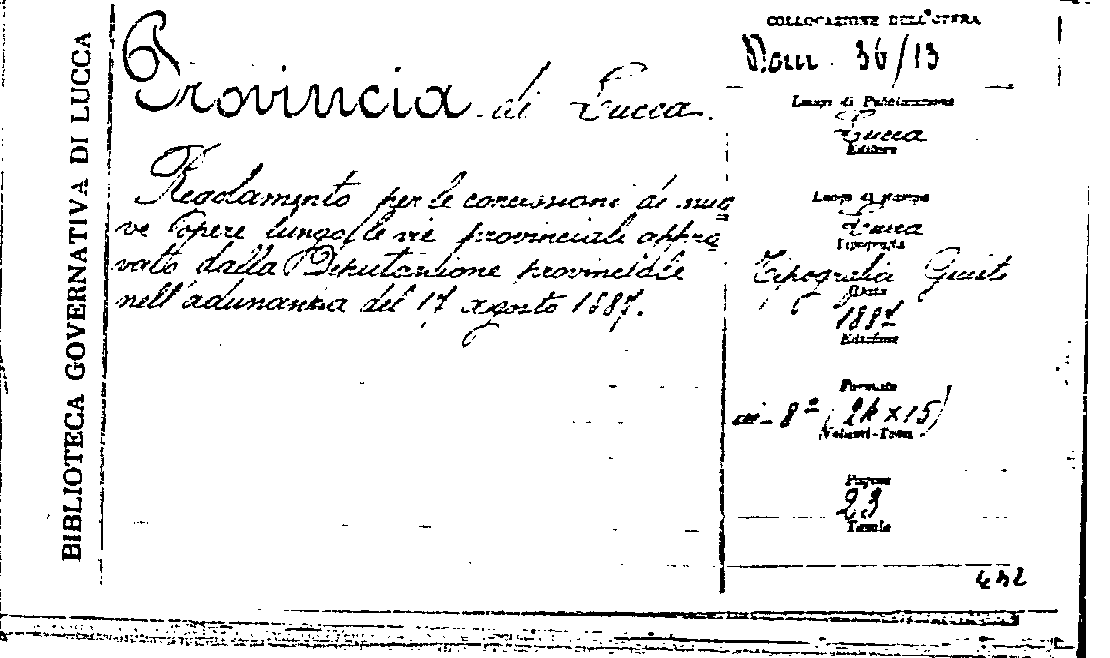 BIBLIOTECA GOVERNATIVA DI LUCCA
Provincia di Lucca.
Regolamento per le concessioni di nuo
ve opere lungo le vie provinciali appro
vato dalla Deputazione provinciale
nell'adunanza del 17 agosto 1887.
COLLOCAZIONE DELL'OPERA
36/13
Luogo di Pubblicazione
Lucca
Editore
Luogo di stampa
Lucca
Tipografia
Tipografia Giusti
Data
1887
Edizione
Formato
in-8° (24x15)
Volumi-Tomi
Pagine
23
Tavole